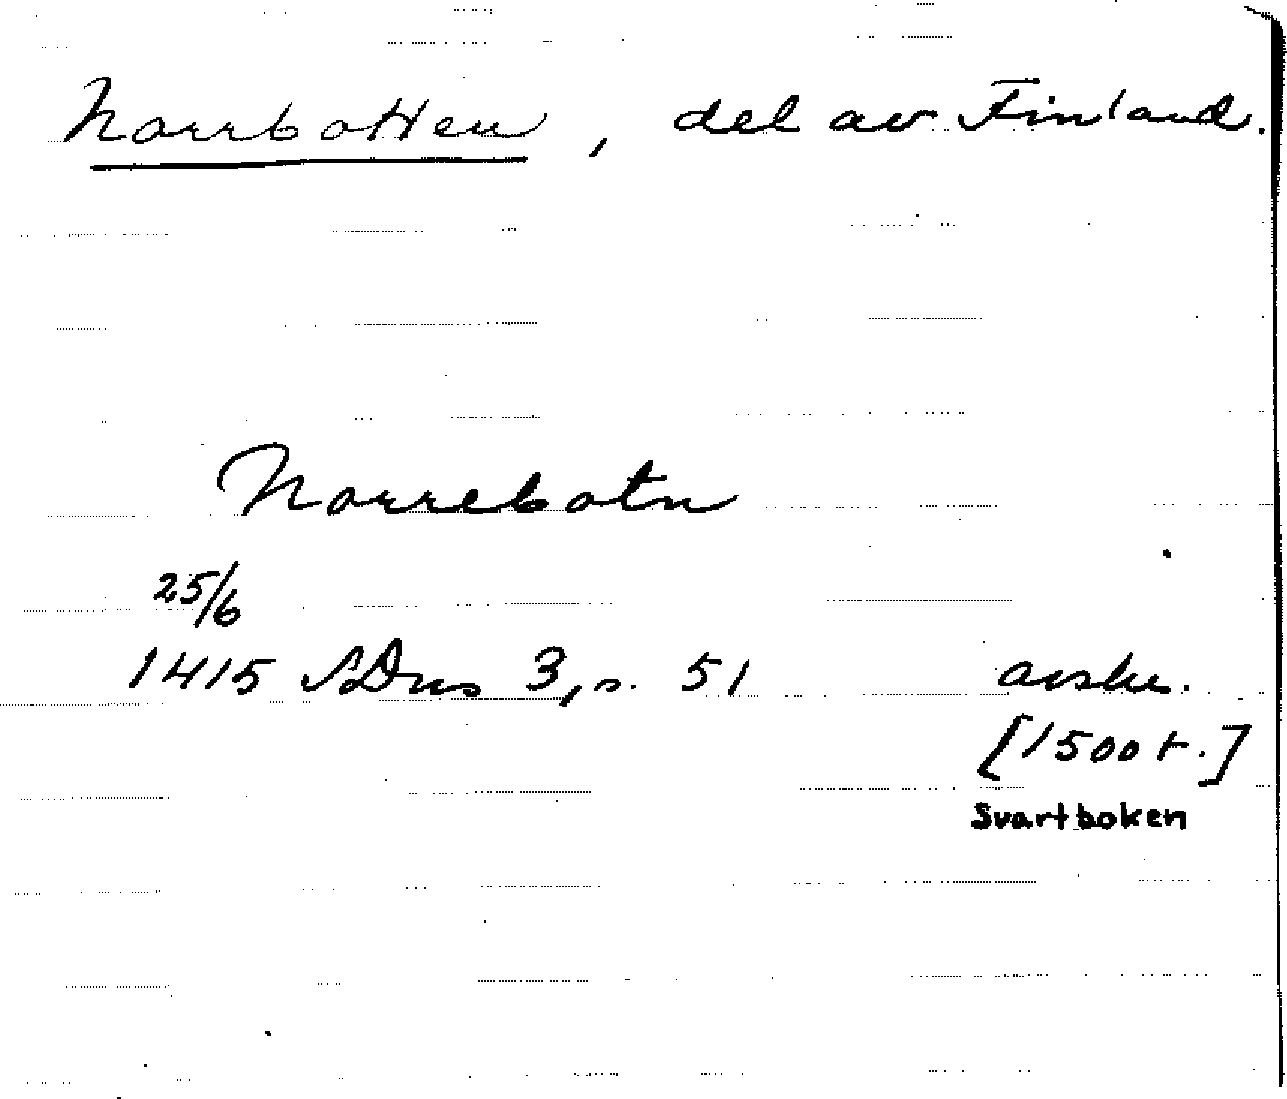 Norrbotten, del av Finland.
Norrebotn
25/6
1415 SDns 3, s. 51 avskr.
[1500 t.]
Svartboken